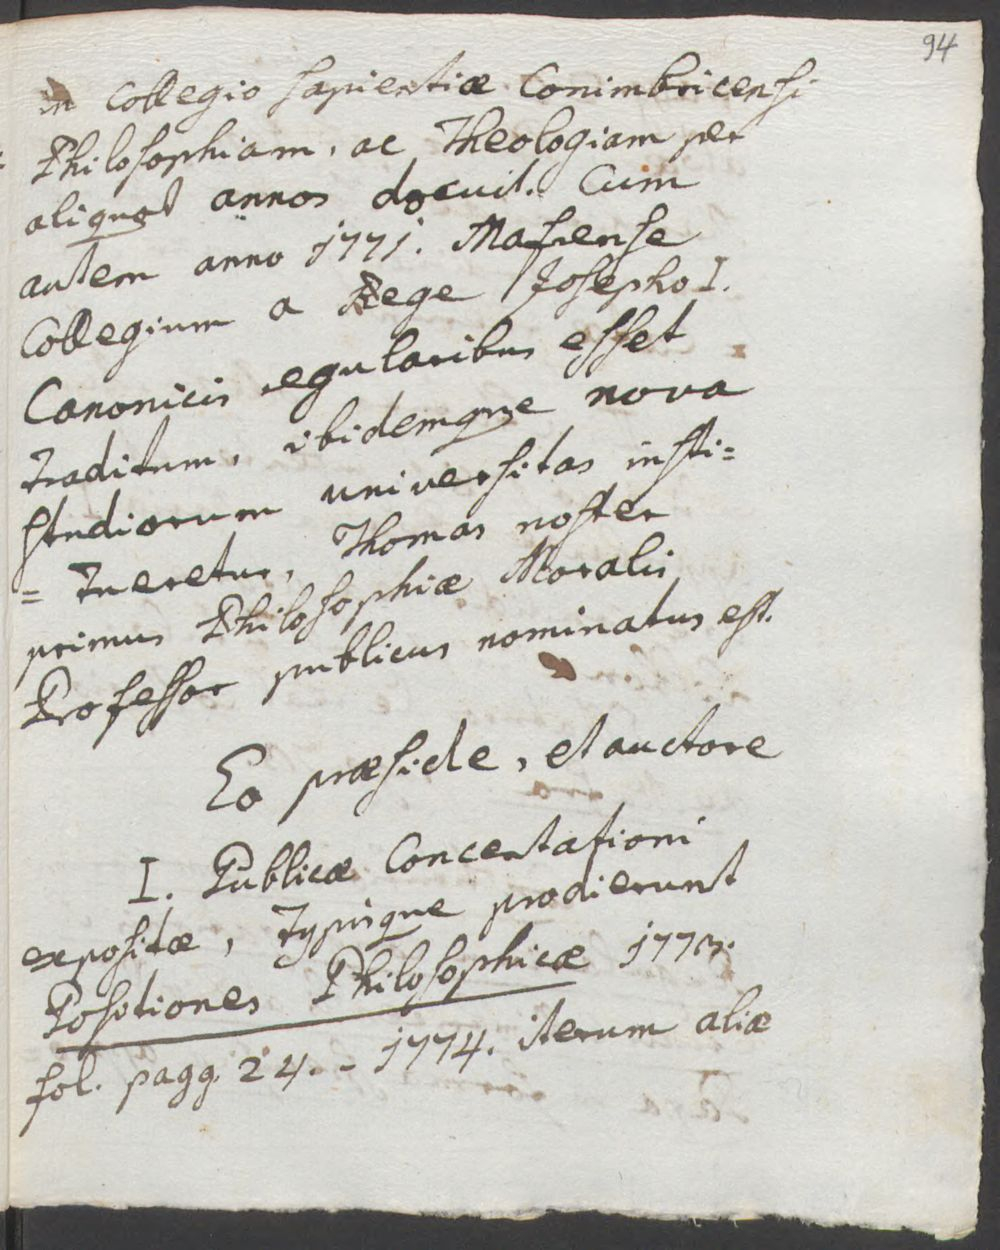 94
in Collegio Sapientiæ Conimbricensi
Philosophiam, ac Theologiam per
aliquot annos docuit. Cum
autem anno 1771. Mafrense
Collegium a Rege Josepho I.
Canonicis regularibus esset
traditum, ibidemque nova
studiorum universitas insti=
= tueretur, Thomas noster
primus Philosophiæ Moralis
Professor publicus nominatus est.
Eo præside, et auctore
I. Publicæ Concertationi
expositæ, typisque prodierunt
Positiones Philosophicæ 1773.
fol. pagg. 24. - 1774. iterum aliæ